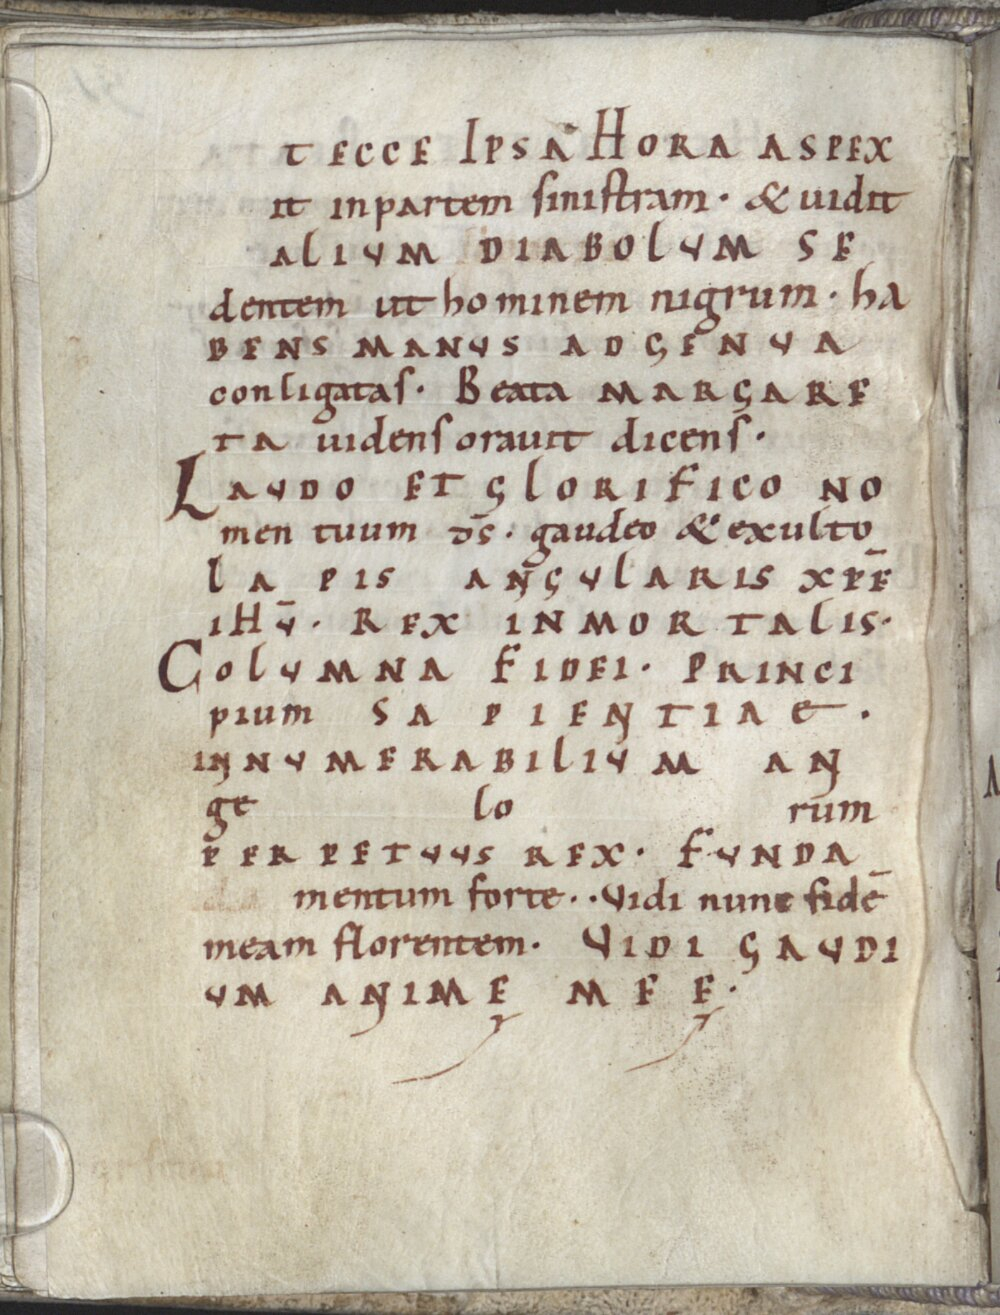 T ECCE IPSA HORA ASPEX
it in partem sinistram · & uidit
ALIUM DIABOLUM SE
dentem ut hominem nigrum · hA
BENS MANUS AD GENUA
conligatas · BeatA MARGARE
TA uidens orauit dicens ·
LAUDO ET GLORIFICO NO
men tuum d̄s · gaudeo & exulto
LA PIS ANGULARIS XP̄E
IHŪ · REX INMORTALIS ·
COLUMNA FIDEI · PRINCI
pium SAPIENTIAE ·
INNUMERABILIUM AN
ge lo rum
PERPETUUS REX · FUNDA
mentum forte · · Uidi nunc fidē
meam florentem · UIDI GAUDI
UM ANIMĘ MEĘ ·